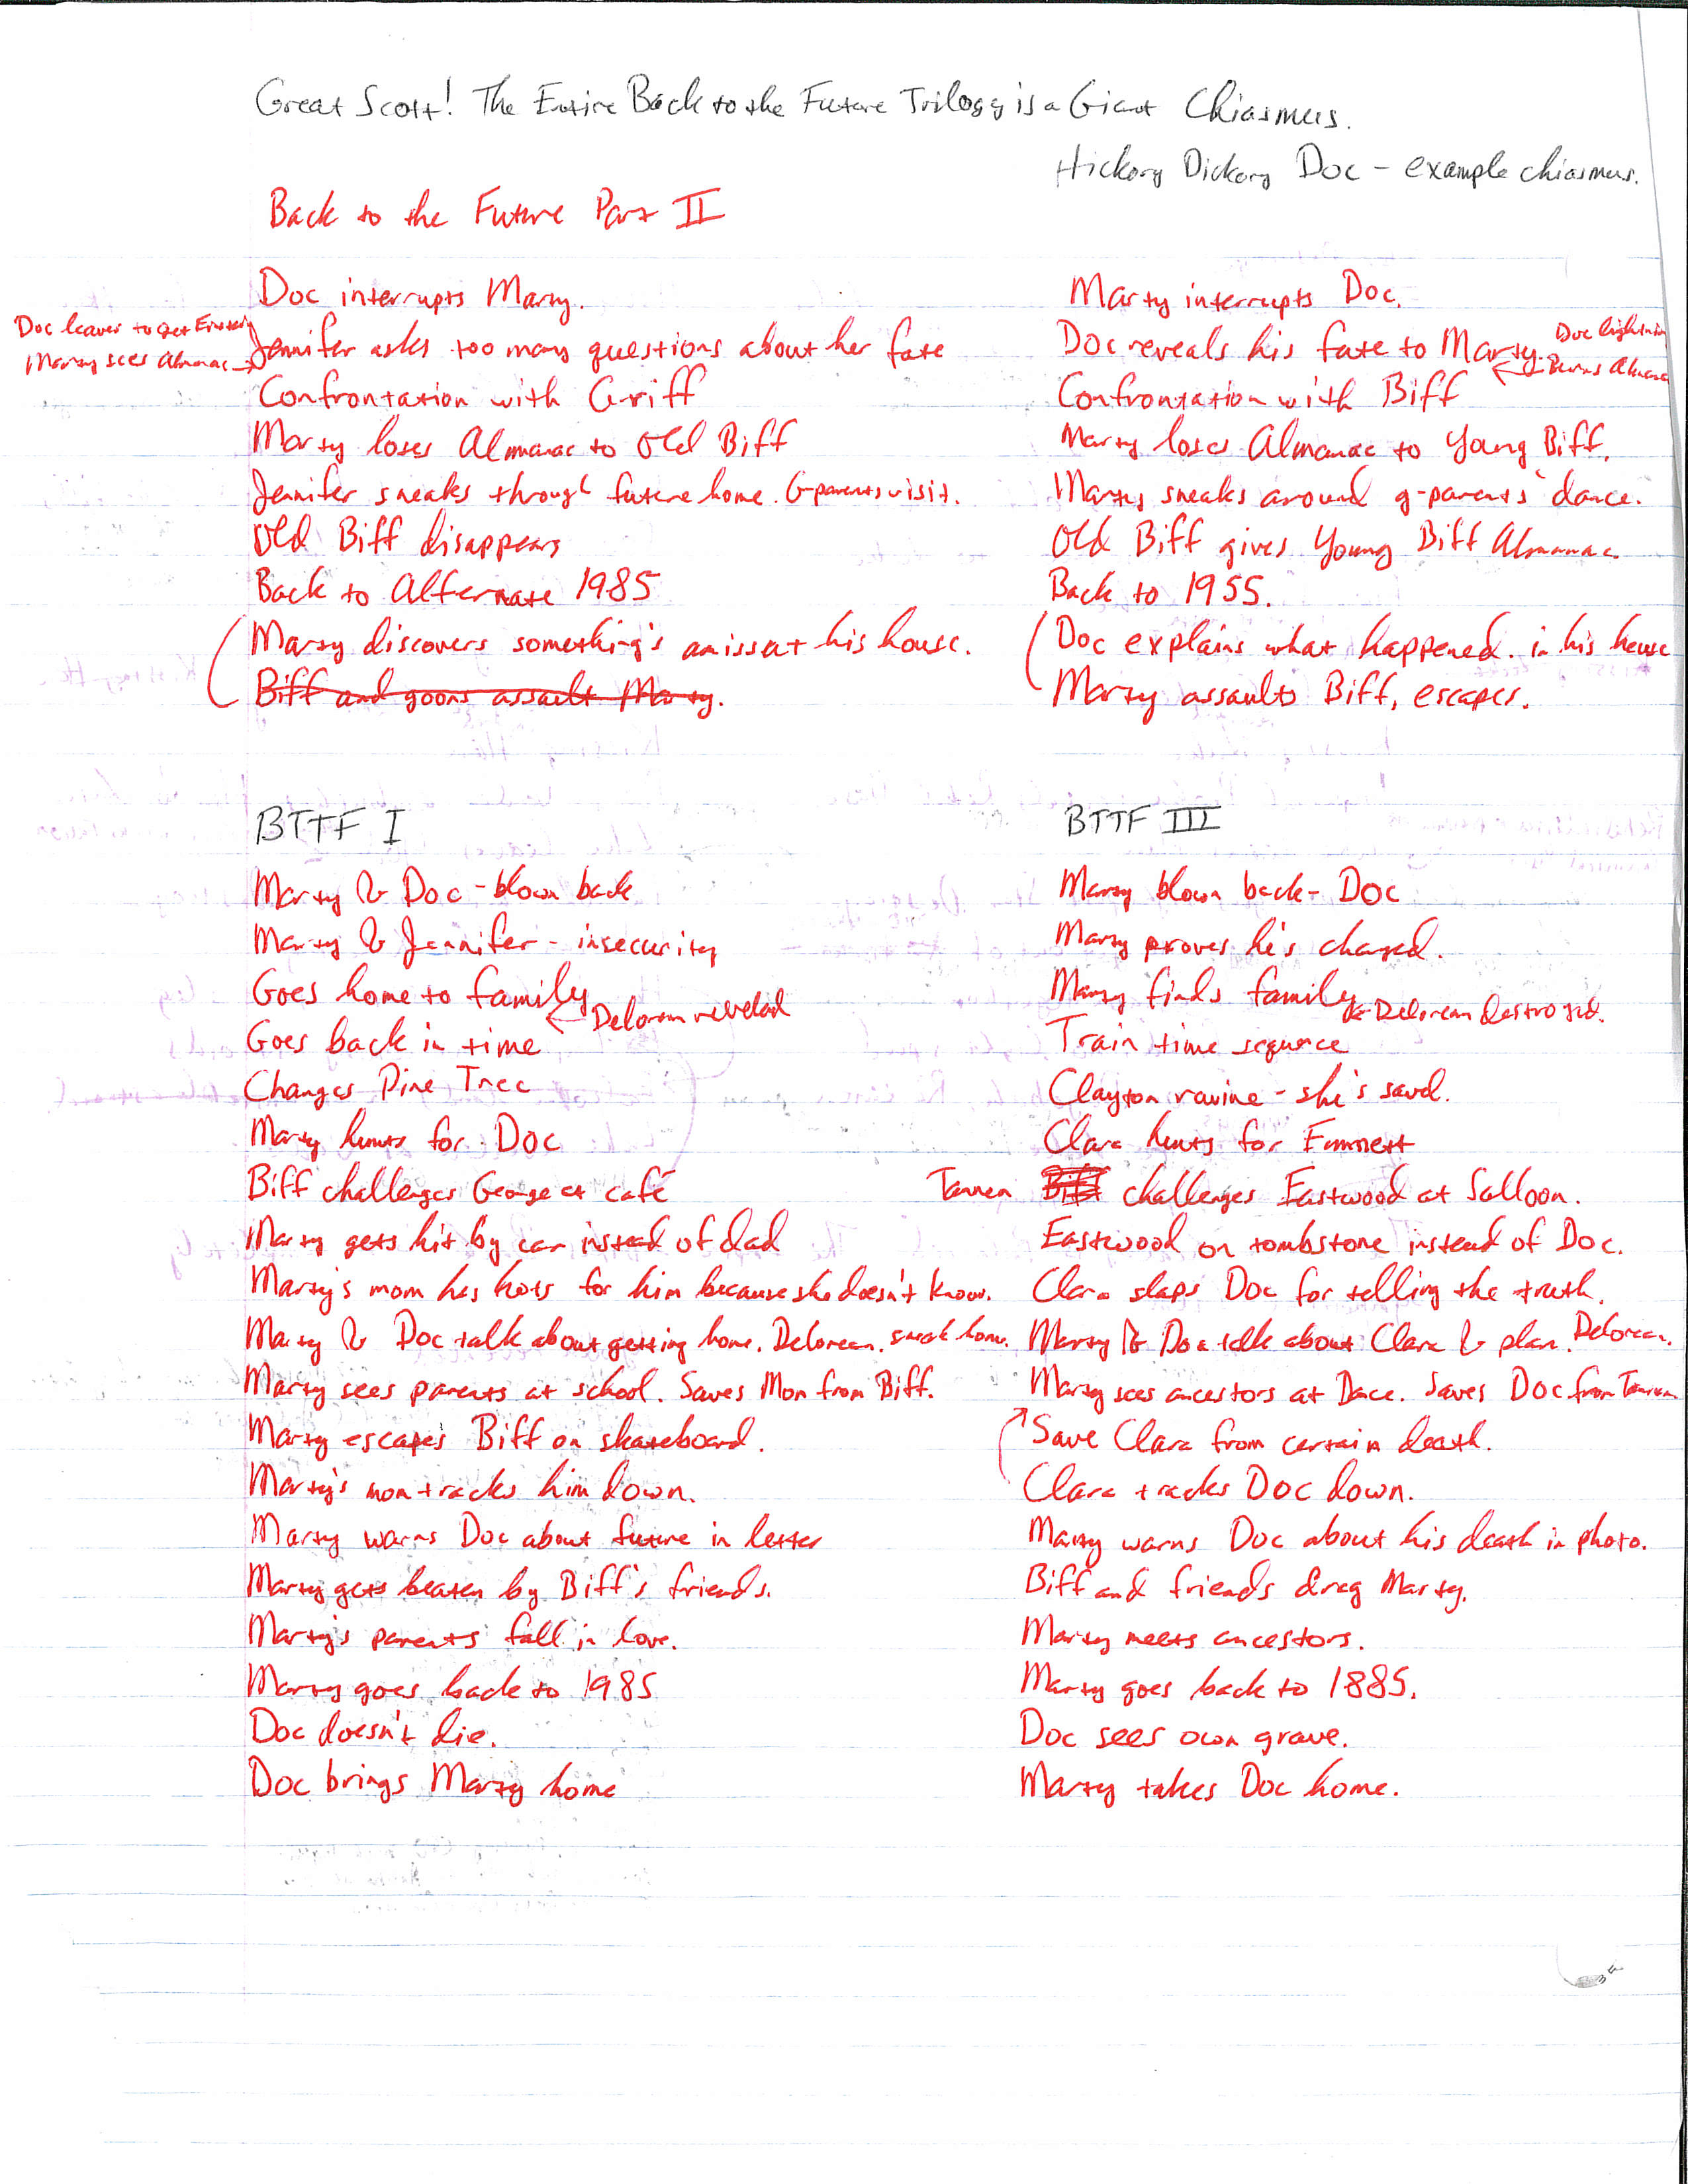 Great Scott! The Entire Back to the Future Trilogy is a Giant Chiasmus.
Hickory Dickory Doc - example chiasmus.
Back to the Future Part II
Doc interrupts Marty.
Marty interrupts Doc.
Doc leaves to get Einstein
Marty sees Almanac →
Jennifer asks too many questions about her fate
Doc reveals his fate to Marty.
Doc lightnin
← Burns Almanac
Confrontation with Griff
Confrontation with Biff
Marty loses Almanac to Old Biff
Marty loses Almanac to Young Biff.
Jennifer sneaks through future home. G-parents visit.
Marty sneaks around g-parents' dance.
Old Biff disappears
Old Biff gives Young Biff Almanac.
Back to Alternate 1985
Back to 1955.
Marty discovers something's amiss at his house.
Doc explains what happened. in his house
Biff and goons assault Marty.
Marty assaults Biff, escapes.
BTTF I
BTTF III
Marty & Doc - blown back
Marty blown back - Doc
Marty & Jennifer - insecurity
Marty proves he's changed.
Goes home to family
← Delorean revelad
Marty finds family
← Delorean destroyed.
Goes back in time
Train time sequence
Changes Pine Tree
Clayton ravine - she's saved.
Marty hunts for Doc
Clara hunts for Emmett
Biff challenges George at café
Tannen Biff challenges Eastwood at Salloon.
Marty gets hit by car instead of dad
Eastwood on tombstone instead of Doc.
Marty's mom has hots for him because she doesn't know.
Clara slaps Doc for telling the truth.
Marty & Doc talk about getting home. Delorean. sneak home.
Marty & Doc talk about Clara & plan. Delorean.
Marty sees parents at school. Saves Mom from Biff.
Marty sees ancestors at Dace. Saves Doc from Tannen
Marty escapes Biff on skateboard.
Save Clara from certain death.
Marty's mom tracks him down.
Clara tracks Doc down.
Marty warns Doc about future in letter
Marty warns Doc about his death in photo.
Marty gets beaten by Biff's friends.
Biff and friends drag Marty.
Marty's parents fall in love.
Marty meets ancestors.
Marty goes back to 1985
Marty goes back to 1885.
Doc doesn't die.
Doc sees own grave.
Doc brings Marty home
Marty takes Doc home.